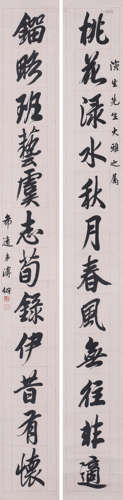 演生先生大雅之屬
桃花渌水秋月春風無往非適
鎦略班藝虞志荀錄伊昔有懷
希遠 溥伒